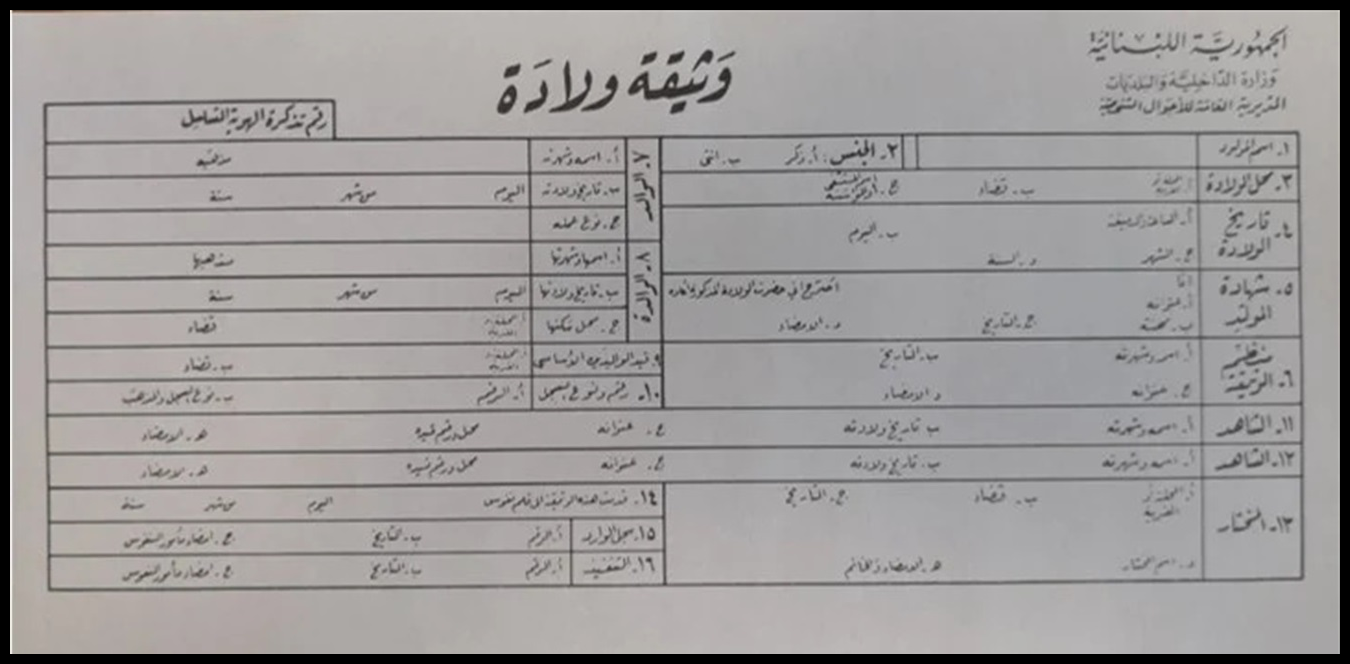 الجمهورية اللبنانية
وزارة الداخلية والبلديات
المديرية العامة للأحوال الشخصية
وثيقة ولادة
رقم تذكرة الهوية التسلسل
١. اسم المولود
٢. الجنس: أ. ذكر ب. انثى
٣. محل الولادة أ. المحلة او القرية ب. قضاء ج. اسم المستشفى أو المؤسسة
٤. تاريخ الولادة أ. الساعة والدقيقة ب. اليوم
ج. الشهر د. السنة
٥. شهادة المولد انا اصرح اني حضرت الولادة المذكورة اعلاه
أ. عنوانه
ب. صحة ج. التاريخ د. الامضاء
٦. منظم الوثيقة أ. اسمه وشهرته ب. التاريخ
ج. عنوانه د. الامضاء
٧. الوالد أ. اسمه وشهرته مذهبه
ب. تاريخ ولادته اليوم من شهر سنة
ج. نوع عمله
٨. الوالدة أ. اسمها وشهرتها مذهبها
ب. تاريخ ولادتها اليوم من شهر سنة
ج. محل سكنها أ. المحلة او القرية قضاء
٩. قيد الوالدين الأساسي أ. المحلة او القرية ب. قضاء
١٠. رقم ونوع السجل أ. الرقم ب. نوع السجل والمذهب
١١. الشاهد أ. اسمه وشهرته ب تاريخ ولادته ج. عنوانه محل ورقم قيده هـ. الامضاء
١٢. الشاهد أ. اسمه وشهرته ب. تاريخ ولادته ج. عنوانه محل ورقم قيده هـ. الامضاء
١٣. المختار أ. المحلة او القرية ب. قضاء ج. التاريخ
د. اسم المختار هـ. الامضاء والخاتم
١٤. قدمت هذه الوثيقة الى قلم نفوس اليوم من شهر سنة
١٥. سجل الوارد أ. الرقم ب. التاريخ ج. امضاء مأمور النفوس
١٦. التنفيذ أ. الرقم ب. التاريخ ج. امضاء مأمور النفوس